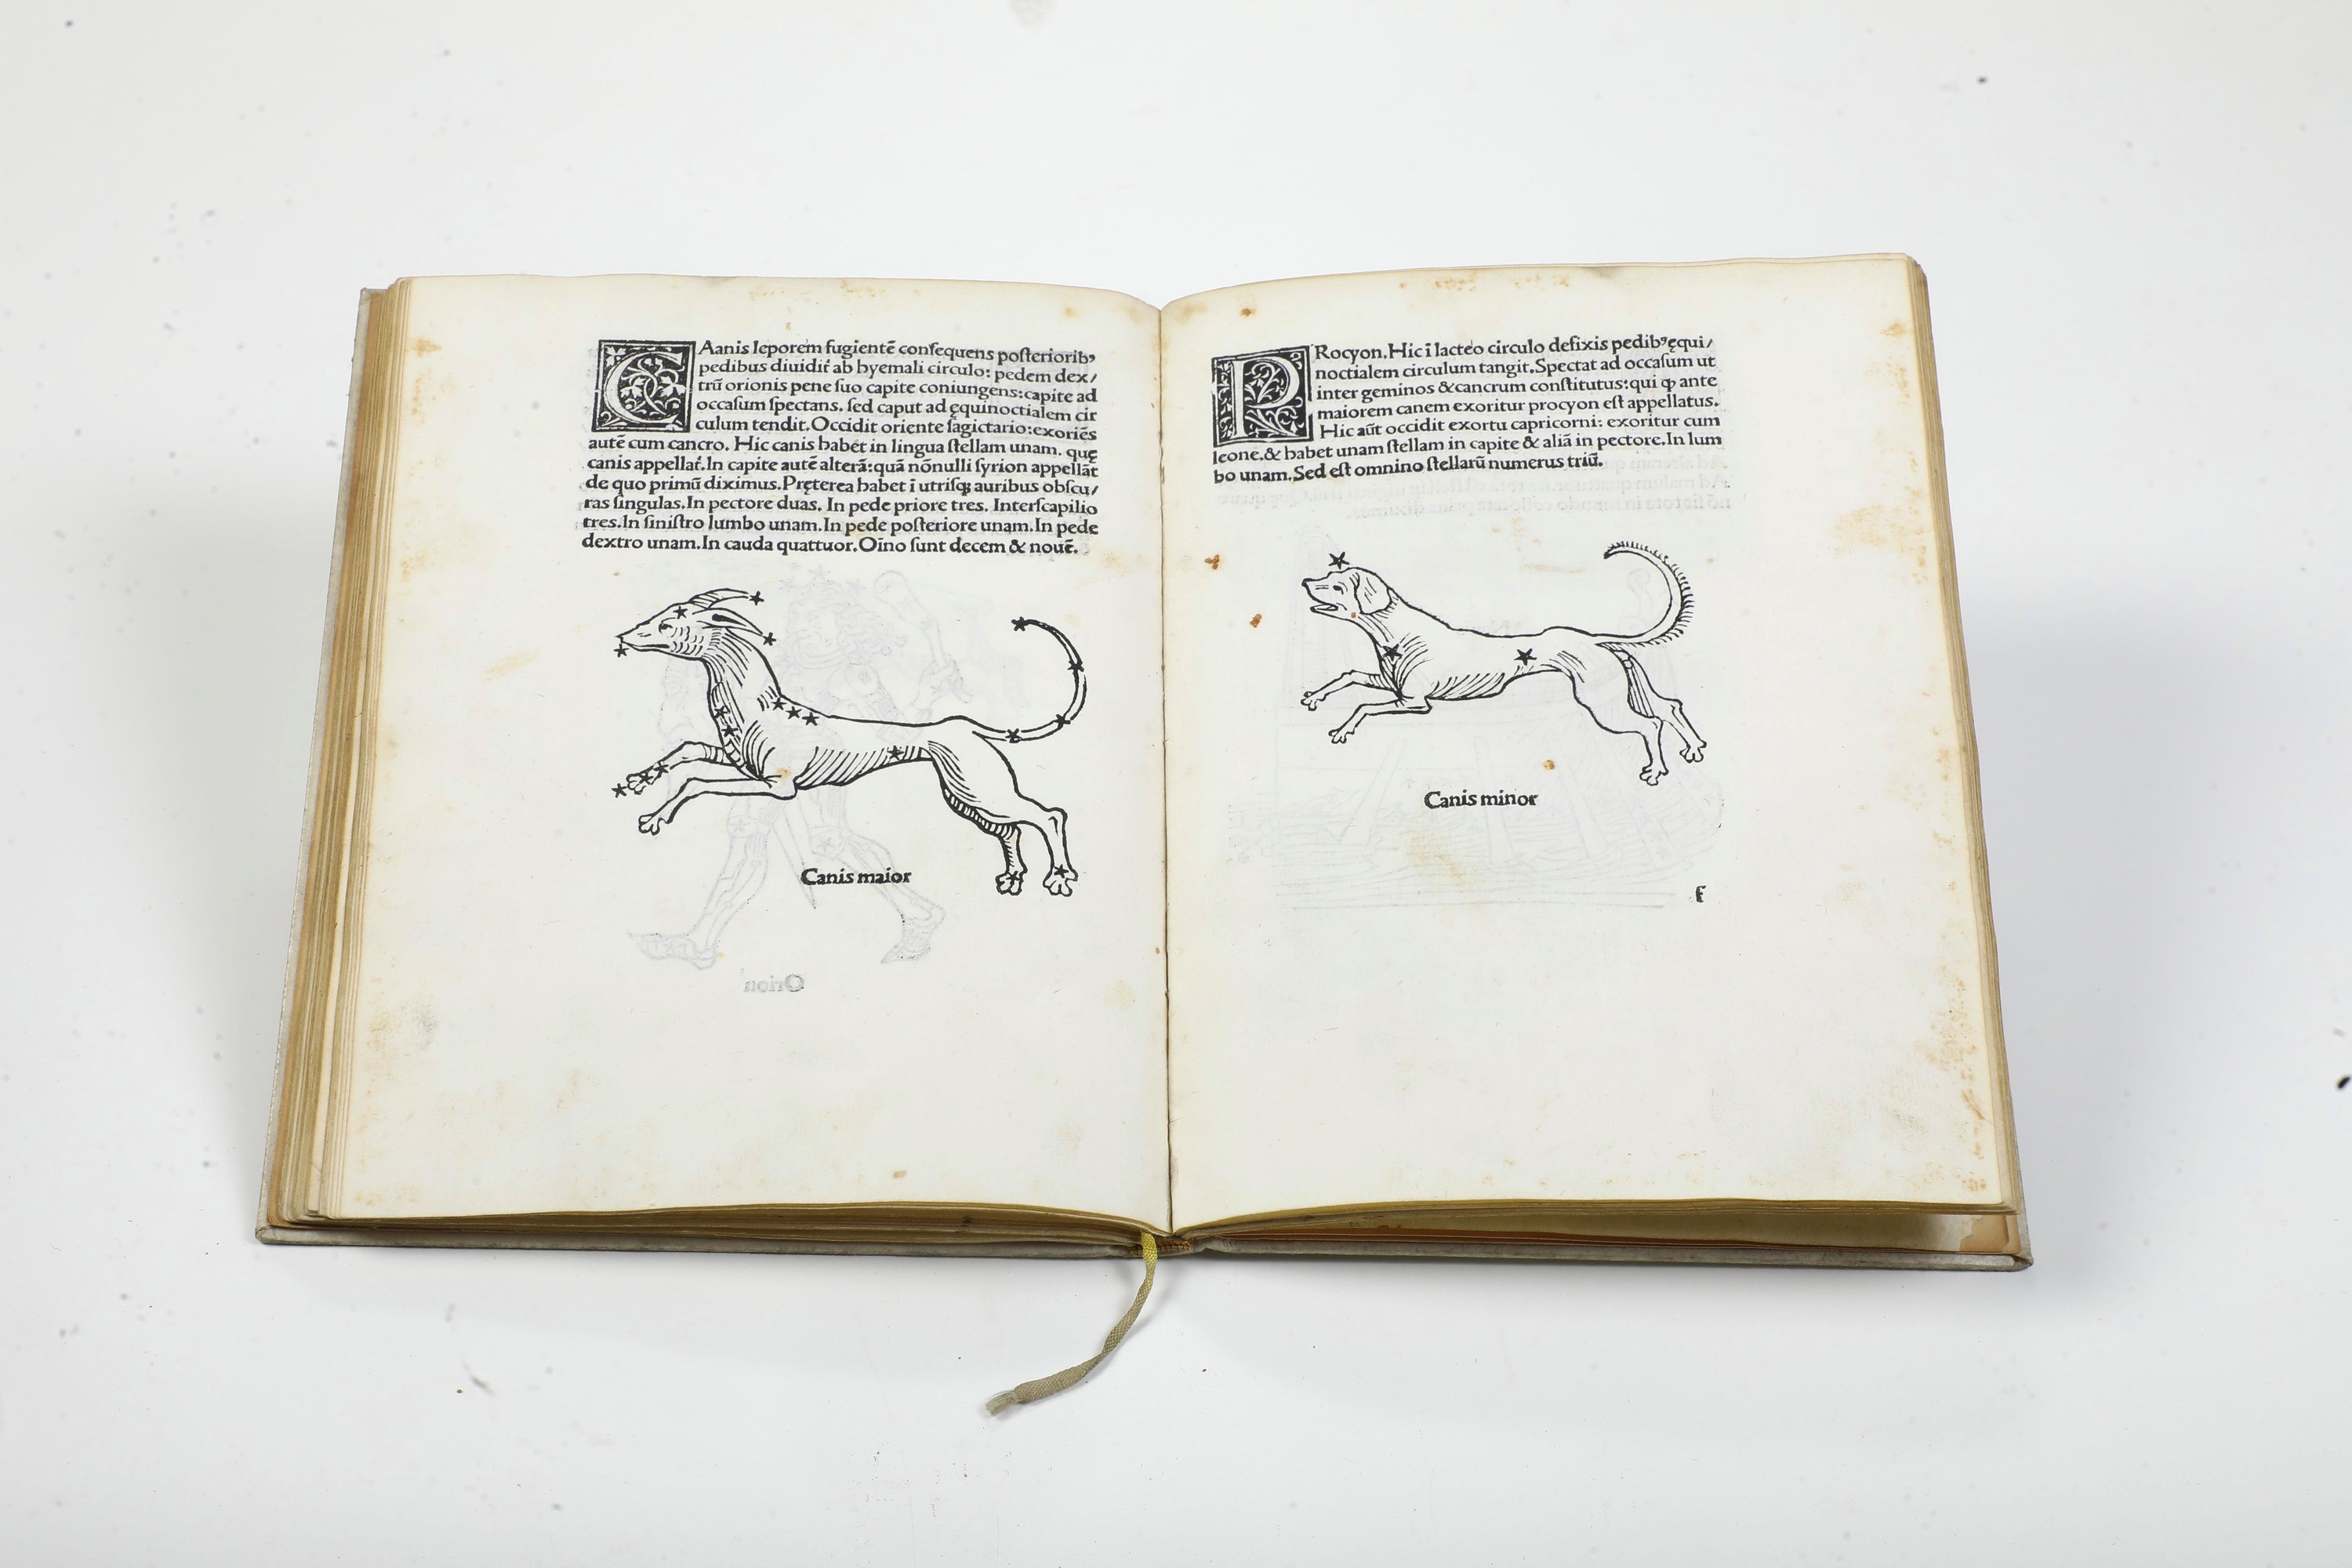 CAanis leporem fugientē conſequens poſteriorib⁹
pedibus diuidiť ab hyemali circulo: pedem dex/
trū orionis pene ſuo capite coniungens:capite ad
occaſum ſpectans. ſed caput ad ęquinoctialem cir
culum tendit. Occidit oriente ſagictario:exoriēs
autē cum cancro. Hic canis habet in lingua ſtellam unam. quę
canis appellať. In capite autē alterā:quā nōnulli ſyrion appellāt
de quo primū diximus. Pręterea habet ī utriſqꝫ auribus obſcu/
ras ſingulas. In pectore duas. In pede priore tres. Interſcapilio
tres. In ſiniſtro lumbo unam. In pede poſteriore unam. In pede
dextro unam. In cauda quattuor. Oīno ſunt decem & nouē.
Canis maior
Orion
PRocyon. Hic ī lacteo circulo defixis pedib⁹ ęqui/
noctialem circulum tangit. Spectat ad occaſum ut
inter geminos & cancrum conſtitutus:qui ꝙ ante
maiorem canem exoritur procyon eſt appellatus.
Hic aūt occidit exortu capricorni: exoritur cum
leone. & habet unam ſtellam in capite & aliā in pectore. In lum
bo unam. Sed eſt omnino ſtellarū numerus triū.
Canis minor
f